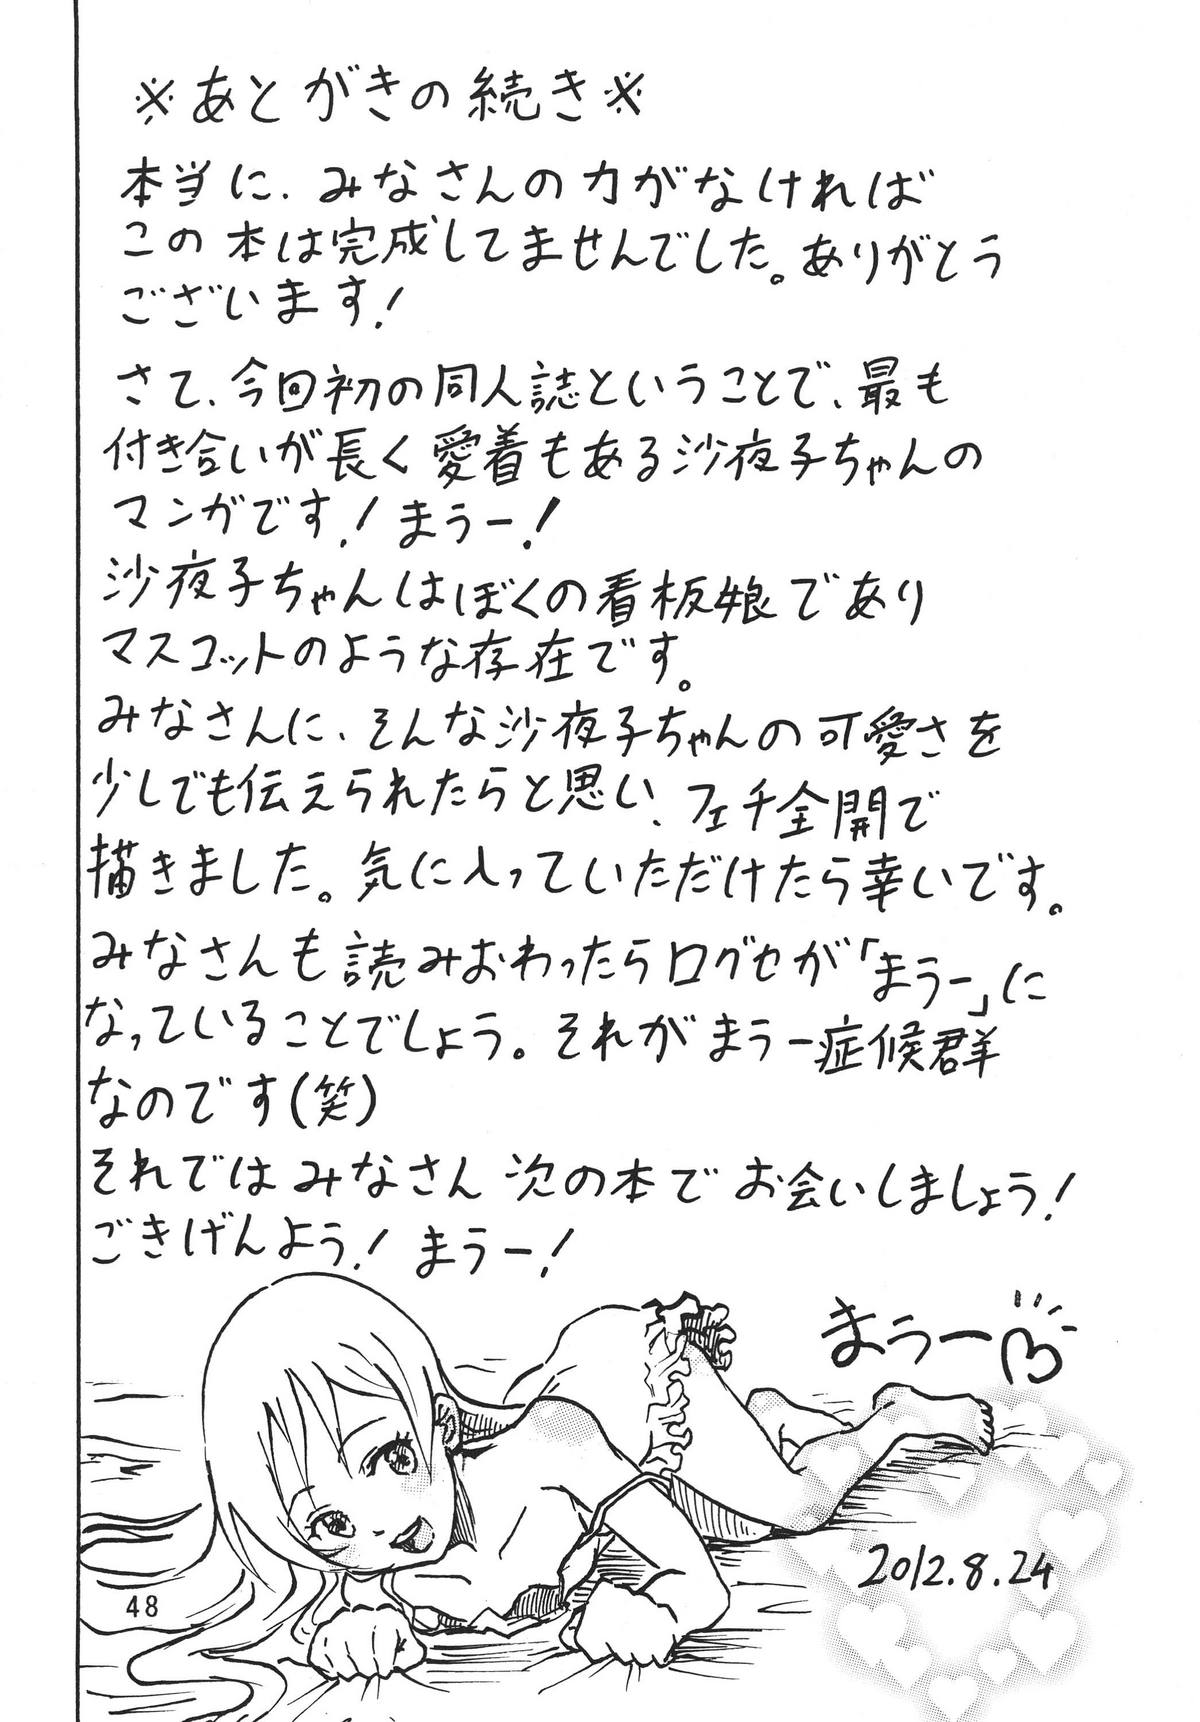 ※あとがきの続き※
本当に、みなさんの力がなければ
この本は完成してませんでした。ありがとう
ございます！
さて、今回初の同人誌ということで、最も
付き合いが長く愛着もある沙夜子ちゃんの
マンガです！まうー！
沙夜子ちゃんはぼくの看板娘であり
マスコットのような存在です。
みなさんに、そんな沙夜子ちゃんの可愛さを
少しでも伝えられたらと思い、フェチ全開で
描きました。気に入っていただけたら幸いです。
みなさんも読みおわったら口グセが「まうー」に
なっていることでしょう。それがまうー症候群
なのです(笑)
それではみなさん次の本でお会いしましょう！
ごきげんよう！まうー！
まうー
2012.8.24
48